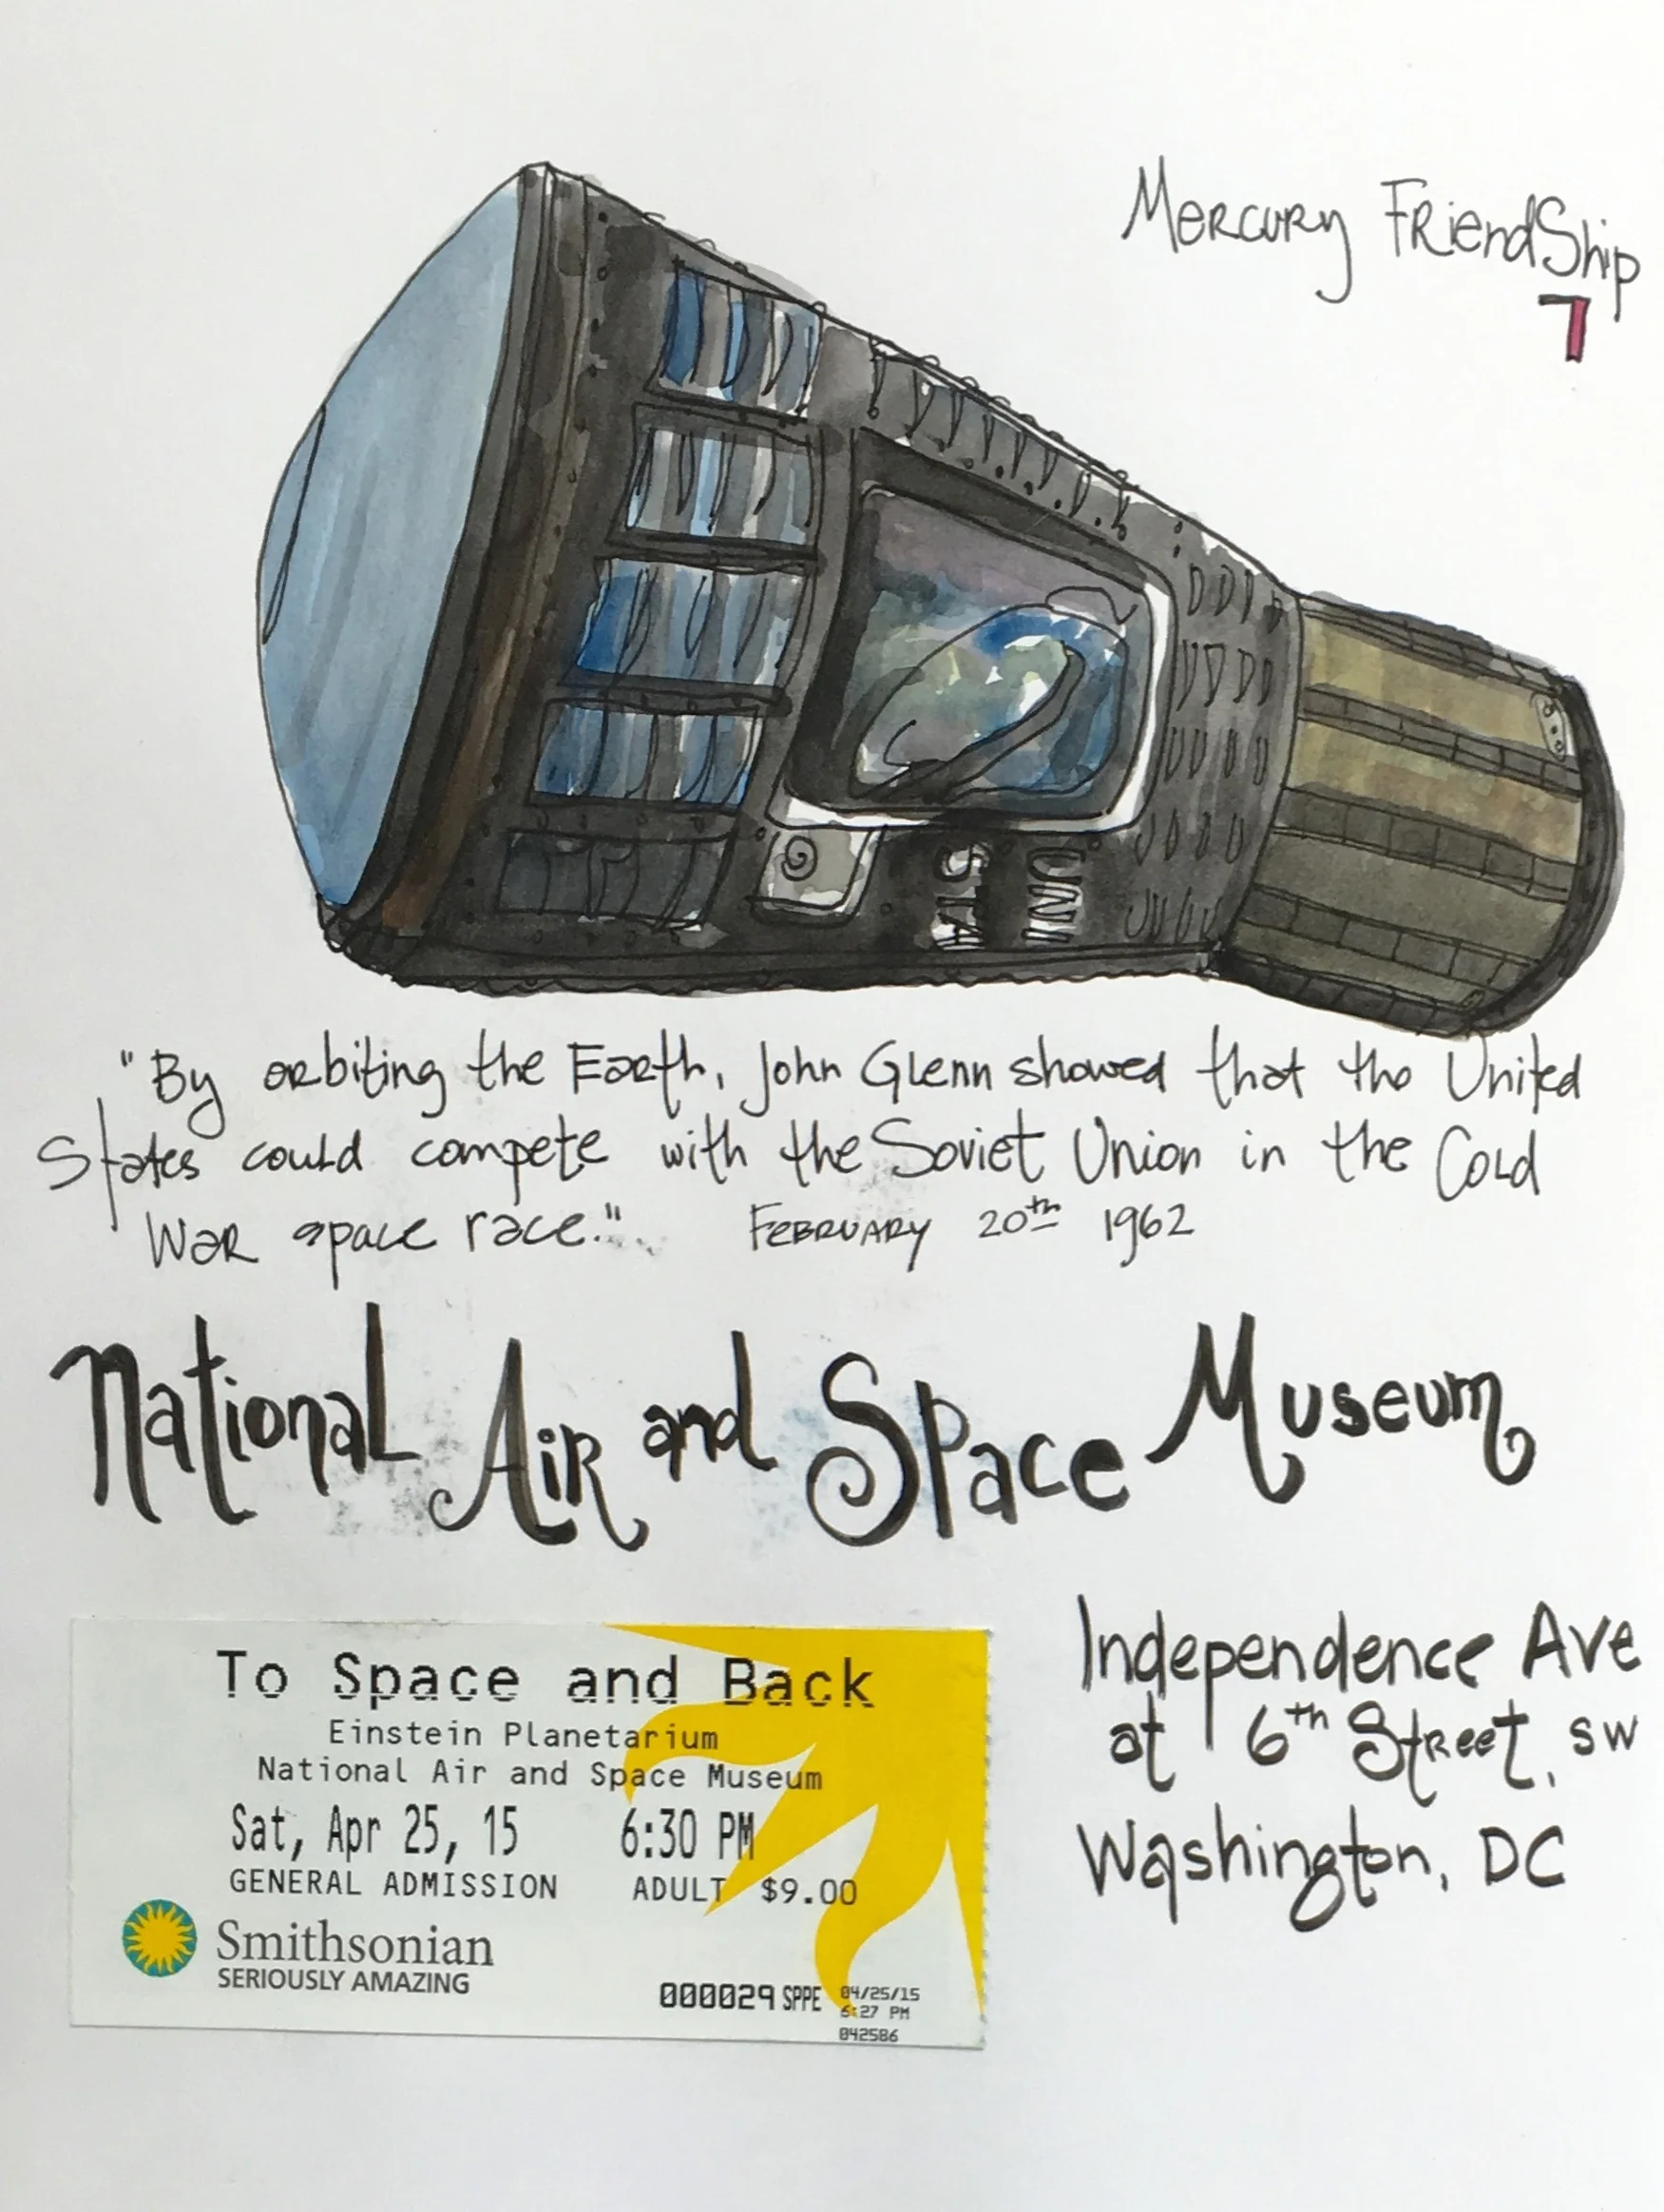 Mercury Friendship
7
UNI
STA
"By orbiting the Earth, John Glenn showed that the United
States could compete with the Soviet Union in the Cold
War space race." February 20th 1962
National Air and Space Museum
To Space and Back
Einstein Planetarium
National Air and Space Museum
Sat, Apr 25, 15 6:30 PM
GENERAL ADMISSION ADULT $9.00
Smithsonian
SERIOUSLY AMAZING
000029 SPPE 04/25/15
6:27 PM
042586
Independence Ave
at 6th Street, SW
Washington, DC